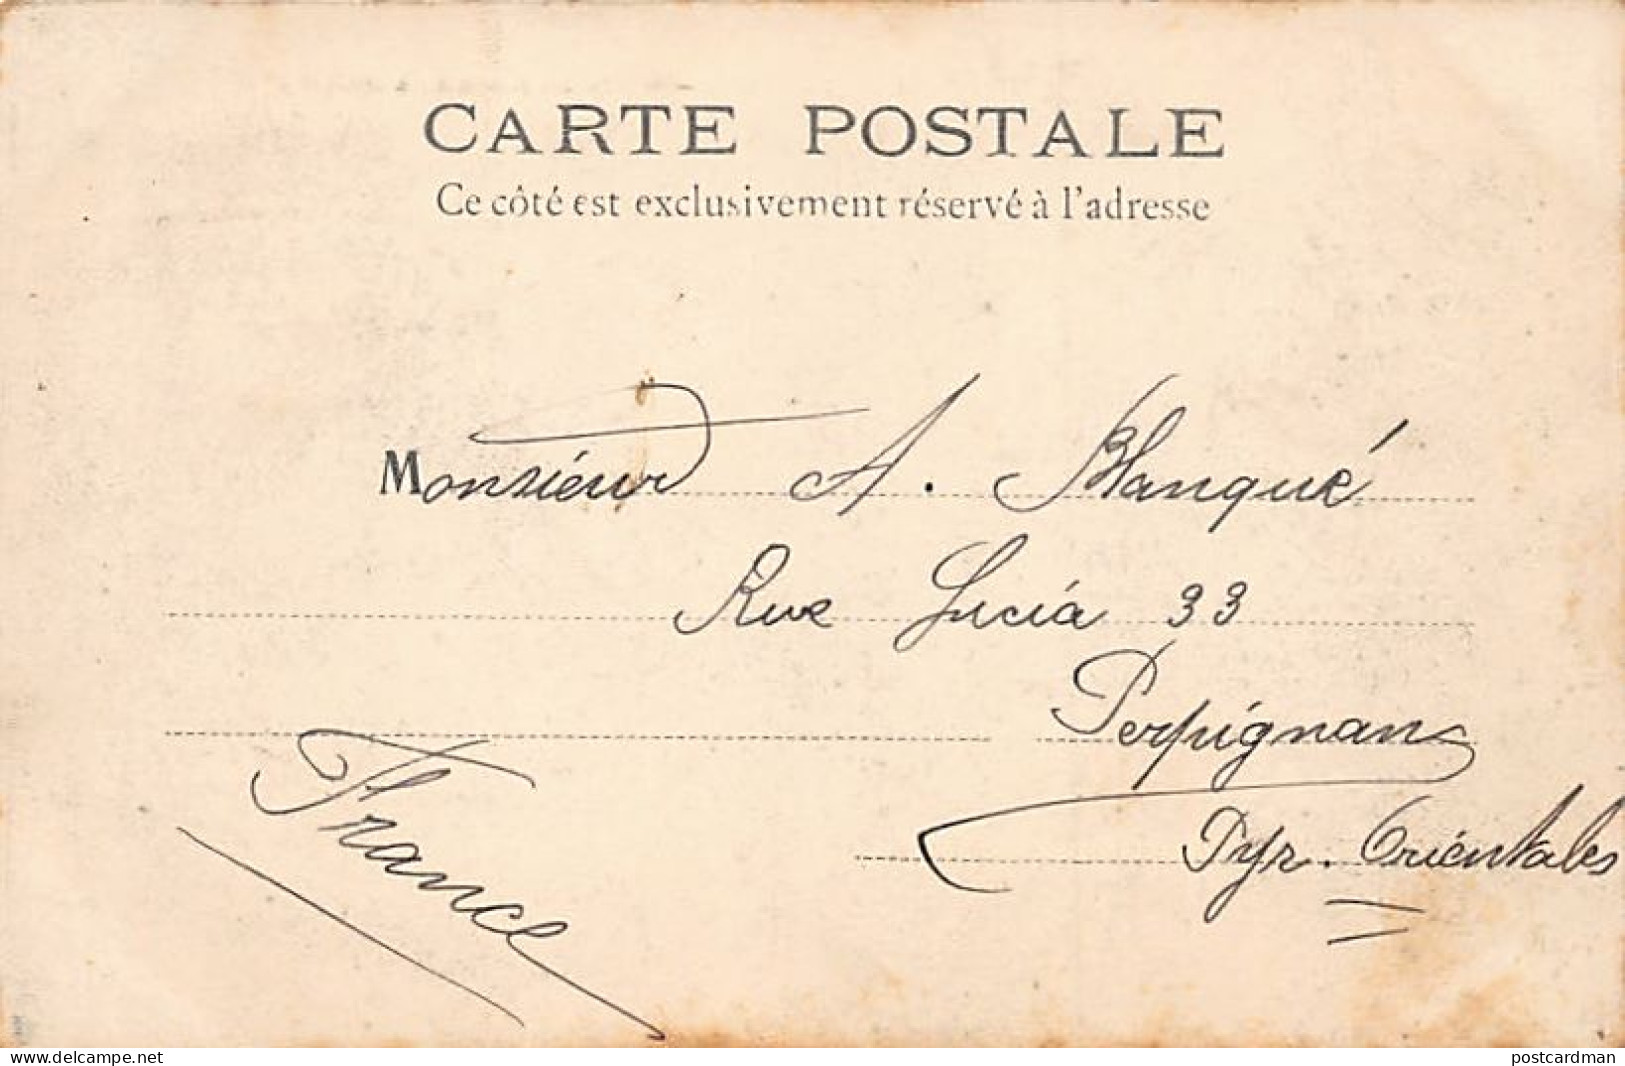 CARTE POSTALE
Ce côté est exclusivement réservé à l'adresse
Monsieur A. Blanqué
Rue Lucia 33
Perpignan
Pyr. Orientales
France
www.delcampe.net
postcardman